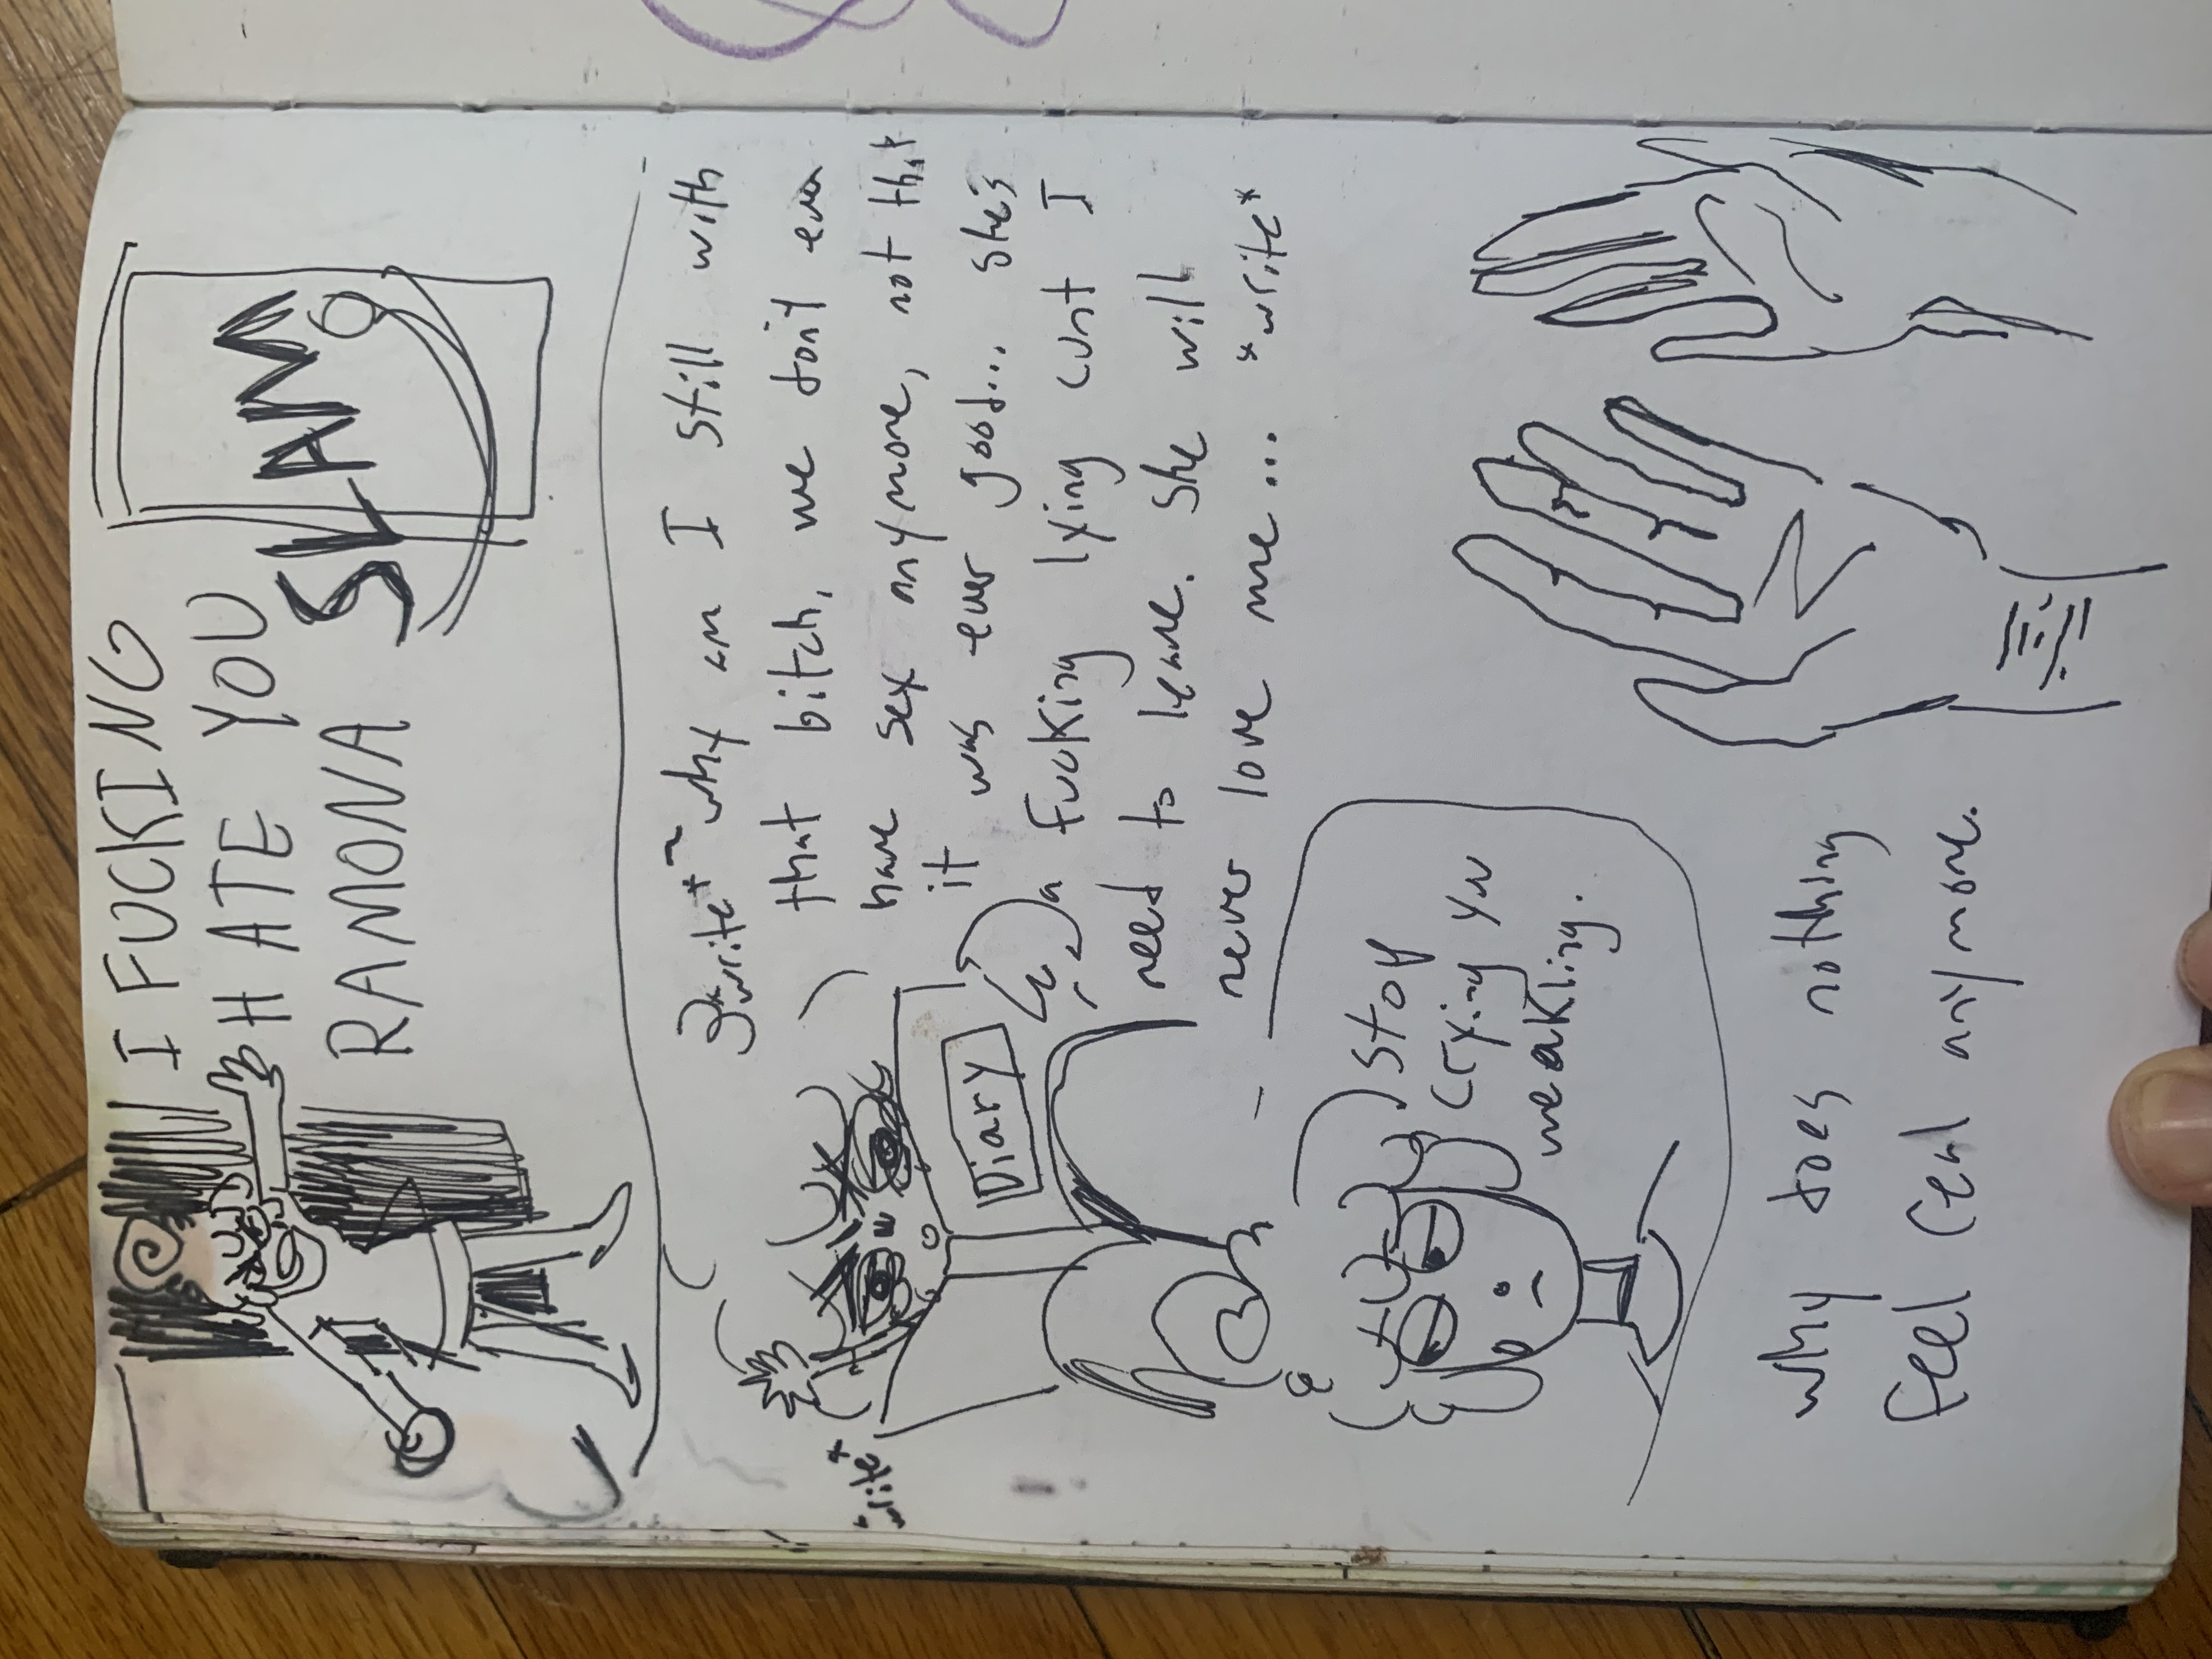 I FUCKING
HATE YOU
RAMONA
SLAM
*write* ~ why am I still with
that bitch, we don't even
have sex anymore, not that
it was ever good... she's
a fucking lying cunt I
need to leave. She will
never love me... *write*
*write*
Diary
stop
crying you
weakling.
why does nothing
feel real anymore.